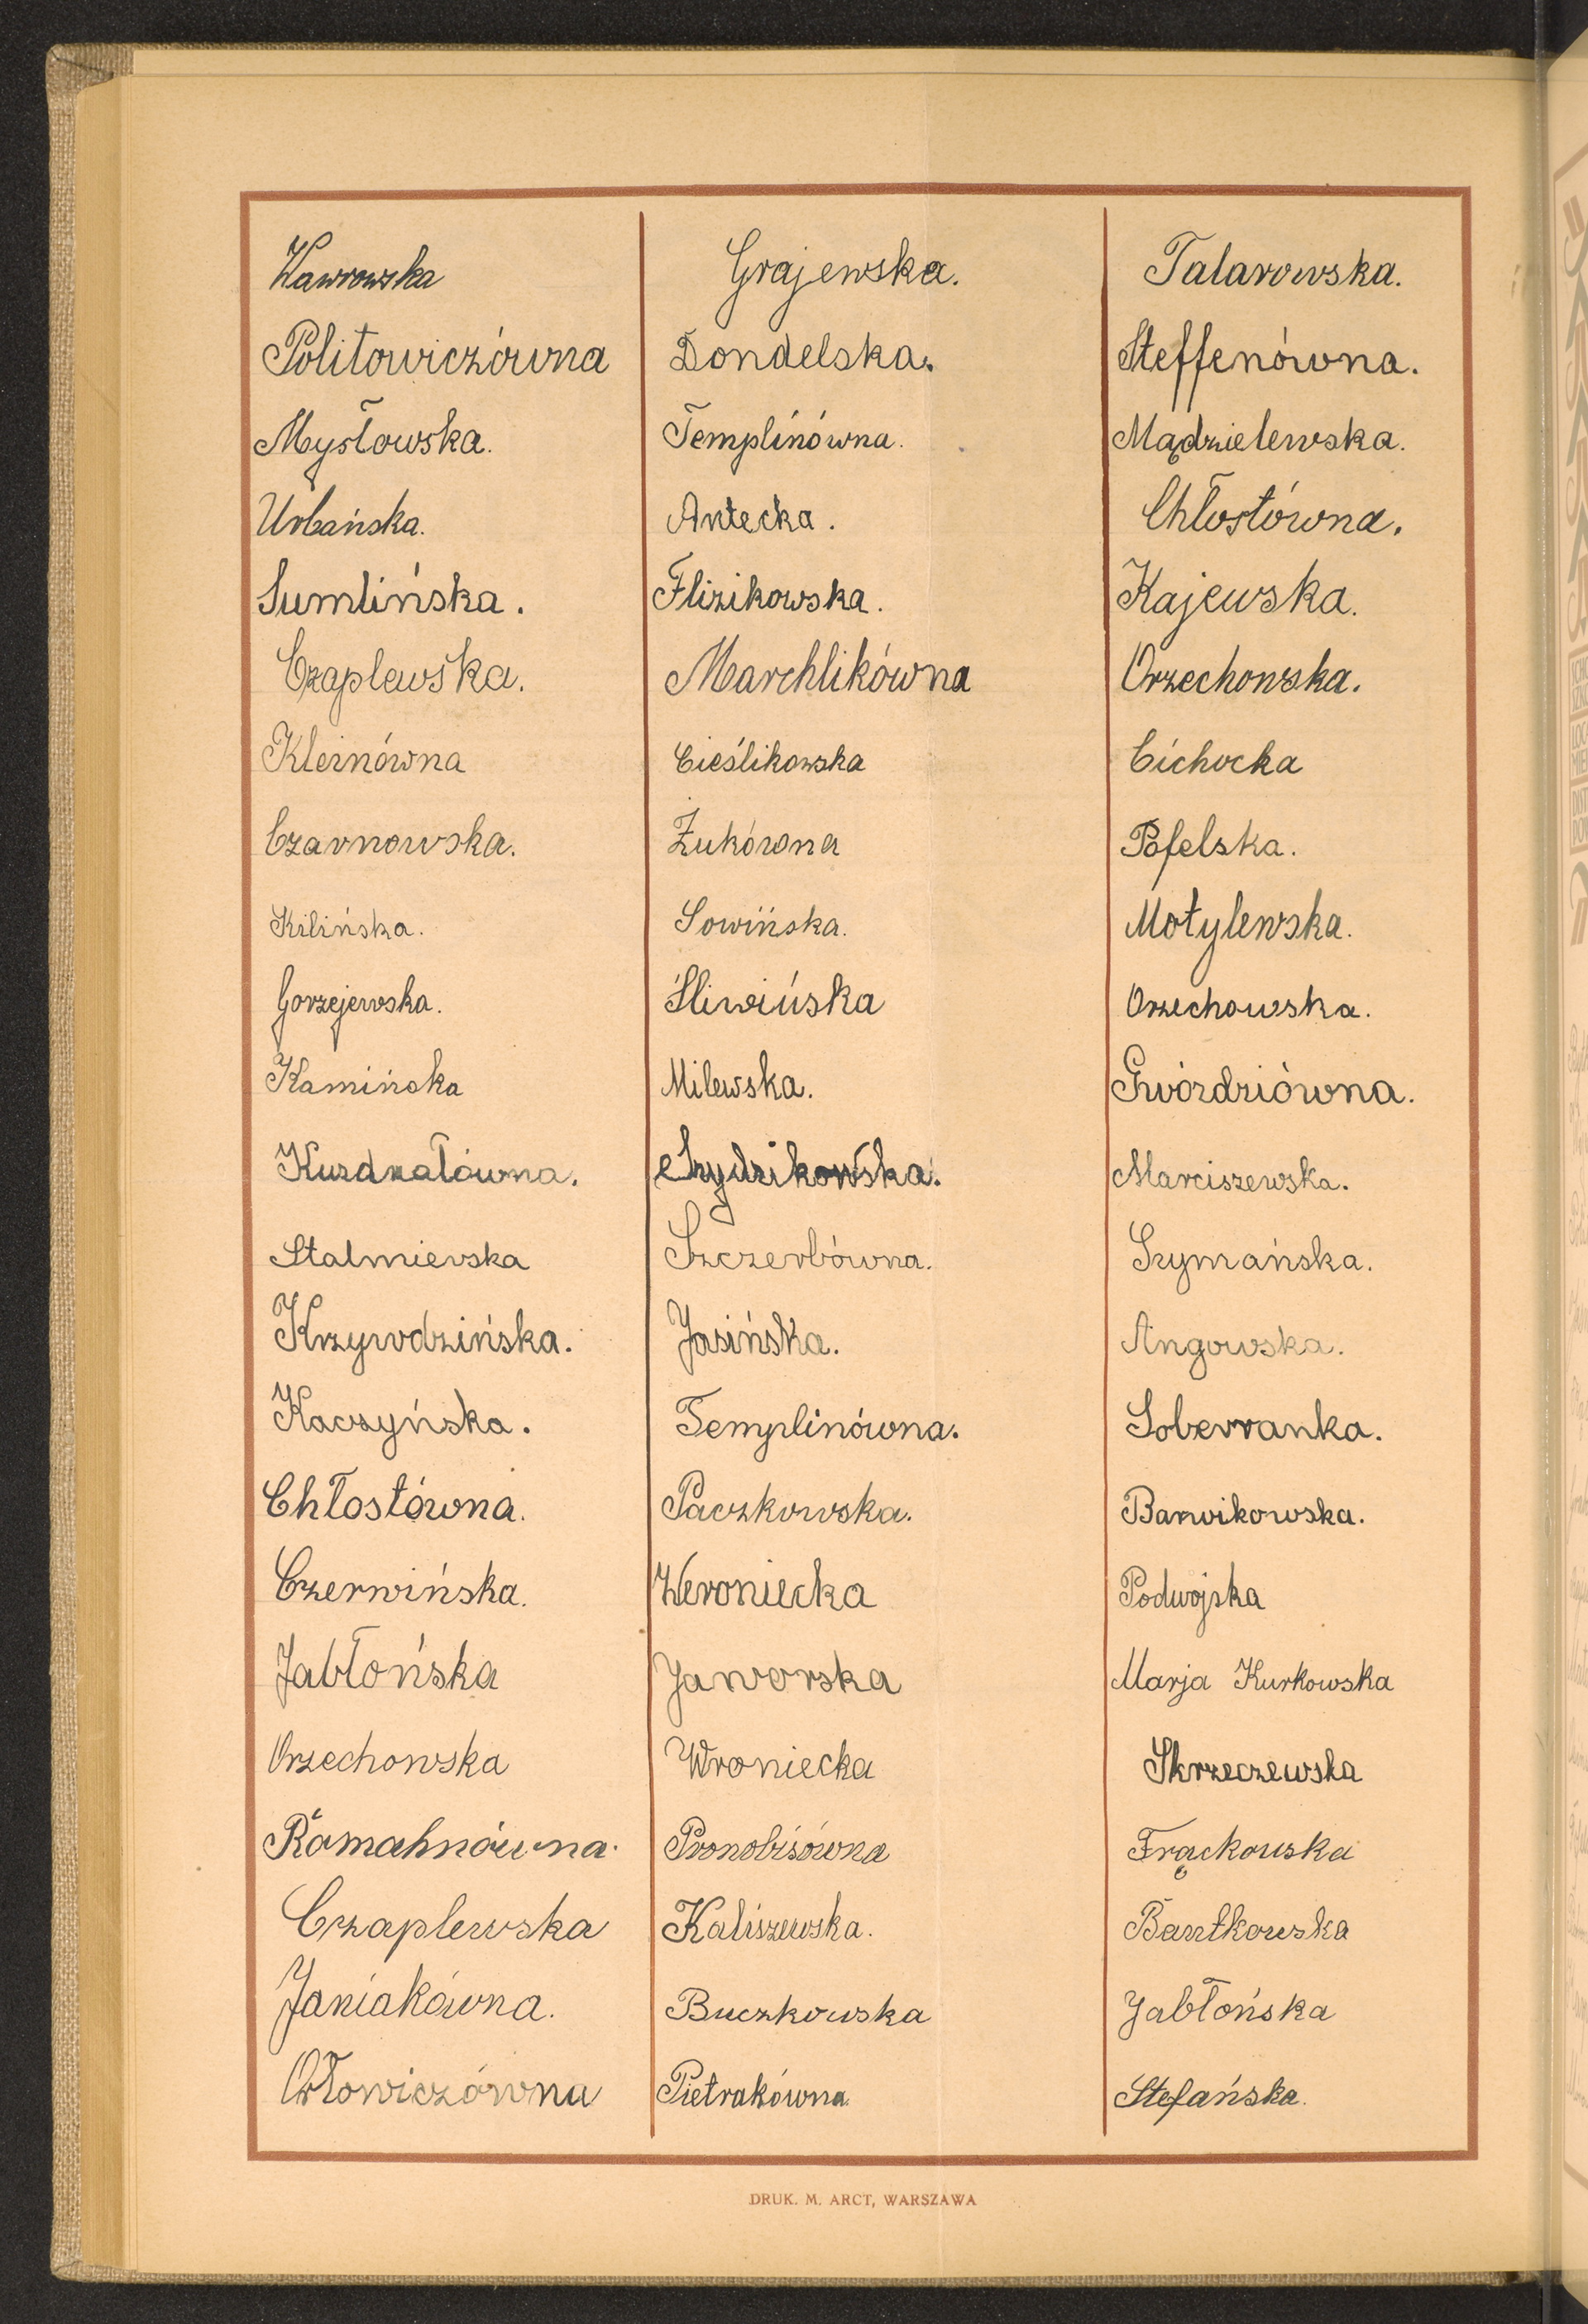 Wawrowska
Politowiczówna
Mysłowska.
Urbańska.
Sumlińska.
Czaplewska.
Kleinówna
Czarnowska.
Kilińska.
Gorzejewska.
Kamińska
Kuzdzałówna.
Stalmierska
Krzywdzińska.
Kaczyńska.
Chłostówna.
Czerwińska.
Jabłońska
Orzechowska
Romahnówna.
Czaplewska
Janiakówna.
Orłowiczówna
Grajewska.
Dondelska.
Templinówna.
Antecka.
Flizikowska.
Marchlikówna
Cieślikowska
Żukówna
Sowińska.
Śliwińska
Milewska.
Szydzikowska.
Szczerbówna.
Jasińska.
Templinówna.
Paczkowska.
Weroniecka
Jaworska
Wroniecka
Pronobisówna
Kaliszewska.
Buczkowska
Pietrakówna
Talarowska.
Steffenówna.
Mądzielewska.
Chłostówna.
Kajewska.
Orzechowska.
Cichocka
Pofelska.
Motylewska.
Orzechowska.
Gwóździówna.
Marciszewska.
Szymańska.
Angowska.
Soberranka.
Barwikowska.
Podwojska
Marja Kurkowska
Skrzeczewska
Frąckowska
Bartkowska
Jabłońska
Stefańska.
DRUK. M. ARCT, WARSZAWA